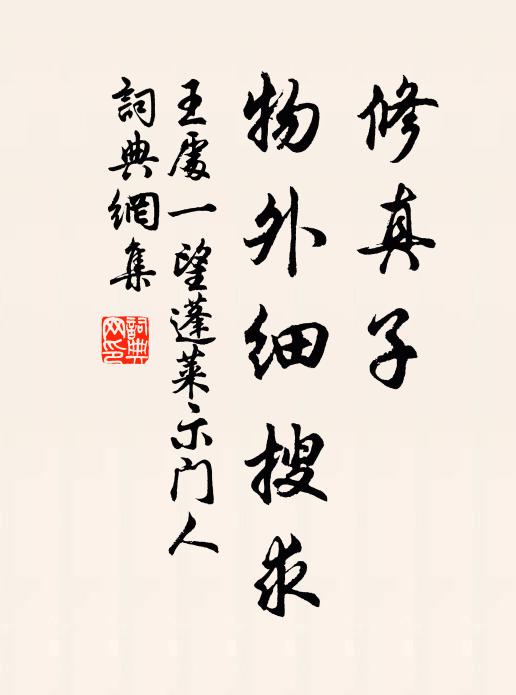 修真子
物外细搜求
王處一望蓬莱示门人
詞典網集
詞典網印